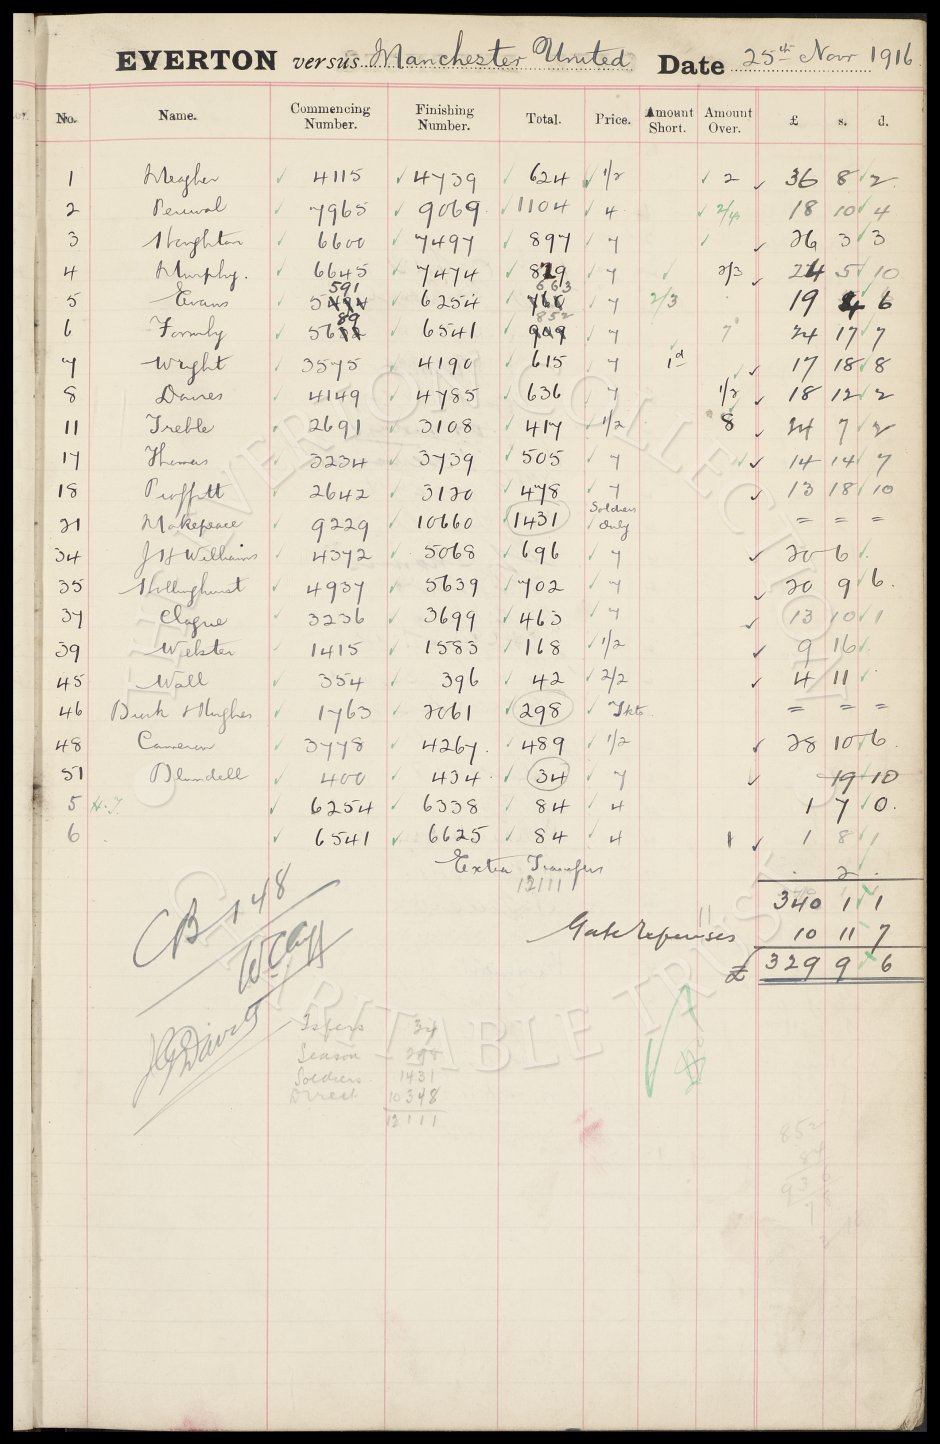 EVERTON versus Manchester United Date 25th Novr 1916
No. Name. Commencing Number. Finishing Number. Total. Price. Amount Short. Amount Over. £ s. d.
1 Meagher 4115 4739 624 1/2 2 36 8 2
2 Percival 7965 9069 1104 4 2/4 18 10 4
3 Houghton 6600 7497 897 7 26 3 3
4 Murphy. 6645 7474 829 7 2/3 24 5 10
591 663
5 Evans 6254 7 2/3 19 4 6
89 852
6 Formby 6541 7 7 24 17 7
7 Wright 3575 4190 615 7 1d 17 18 8
8 Davies 4149 4785 636 7 1/2 18 12 2
11 Treble 2691 3108 417 1/2 8 24 7 2
17 Thomas 3234 3739 505 7 14 14 7
18 Proffitt 2642 3120 478 7 13 18 10
21 Makepeace 9229 10660 1431 Soldiers only = = =
34 J H Williams 4372 5068 696 7 20 6 .
35 Hollinghurst 4937 5639 702 7 20 9 6.
37 Clague 3236 3699 463 7 13 10 1
39 Webster 1415 1583 168 1/2 9 16 .
45 Wall 354 396 42 2/2 4 11 .
46 Burk & Hughes 1763 2061 298 Tkts. = = =
48 Cameron 3778 4267. 489 1/2 28 10 6.
51 Blundell 400 434 34 7 19 10
5 H.T. 6254 6338 84 4 1 7 0.
6 6541 6625 84 4 1 1 8 1
Extra Transfers . 2 .
12111
340 1 1
Gate Expenses 10 11 7
£ 329 9 6
CB 1 48
Tsfers 34
Season 298
Soldiers 1431
Direct 10348
12111
852
84
936